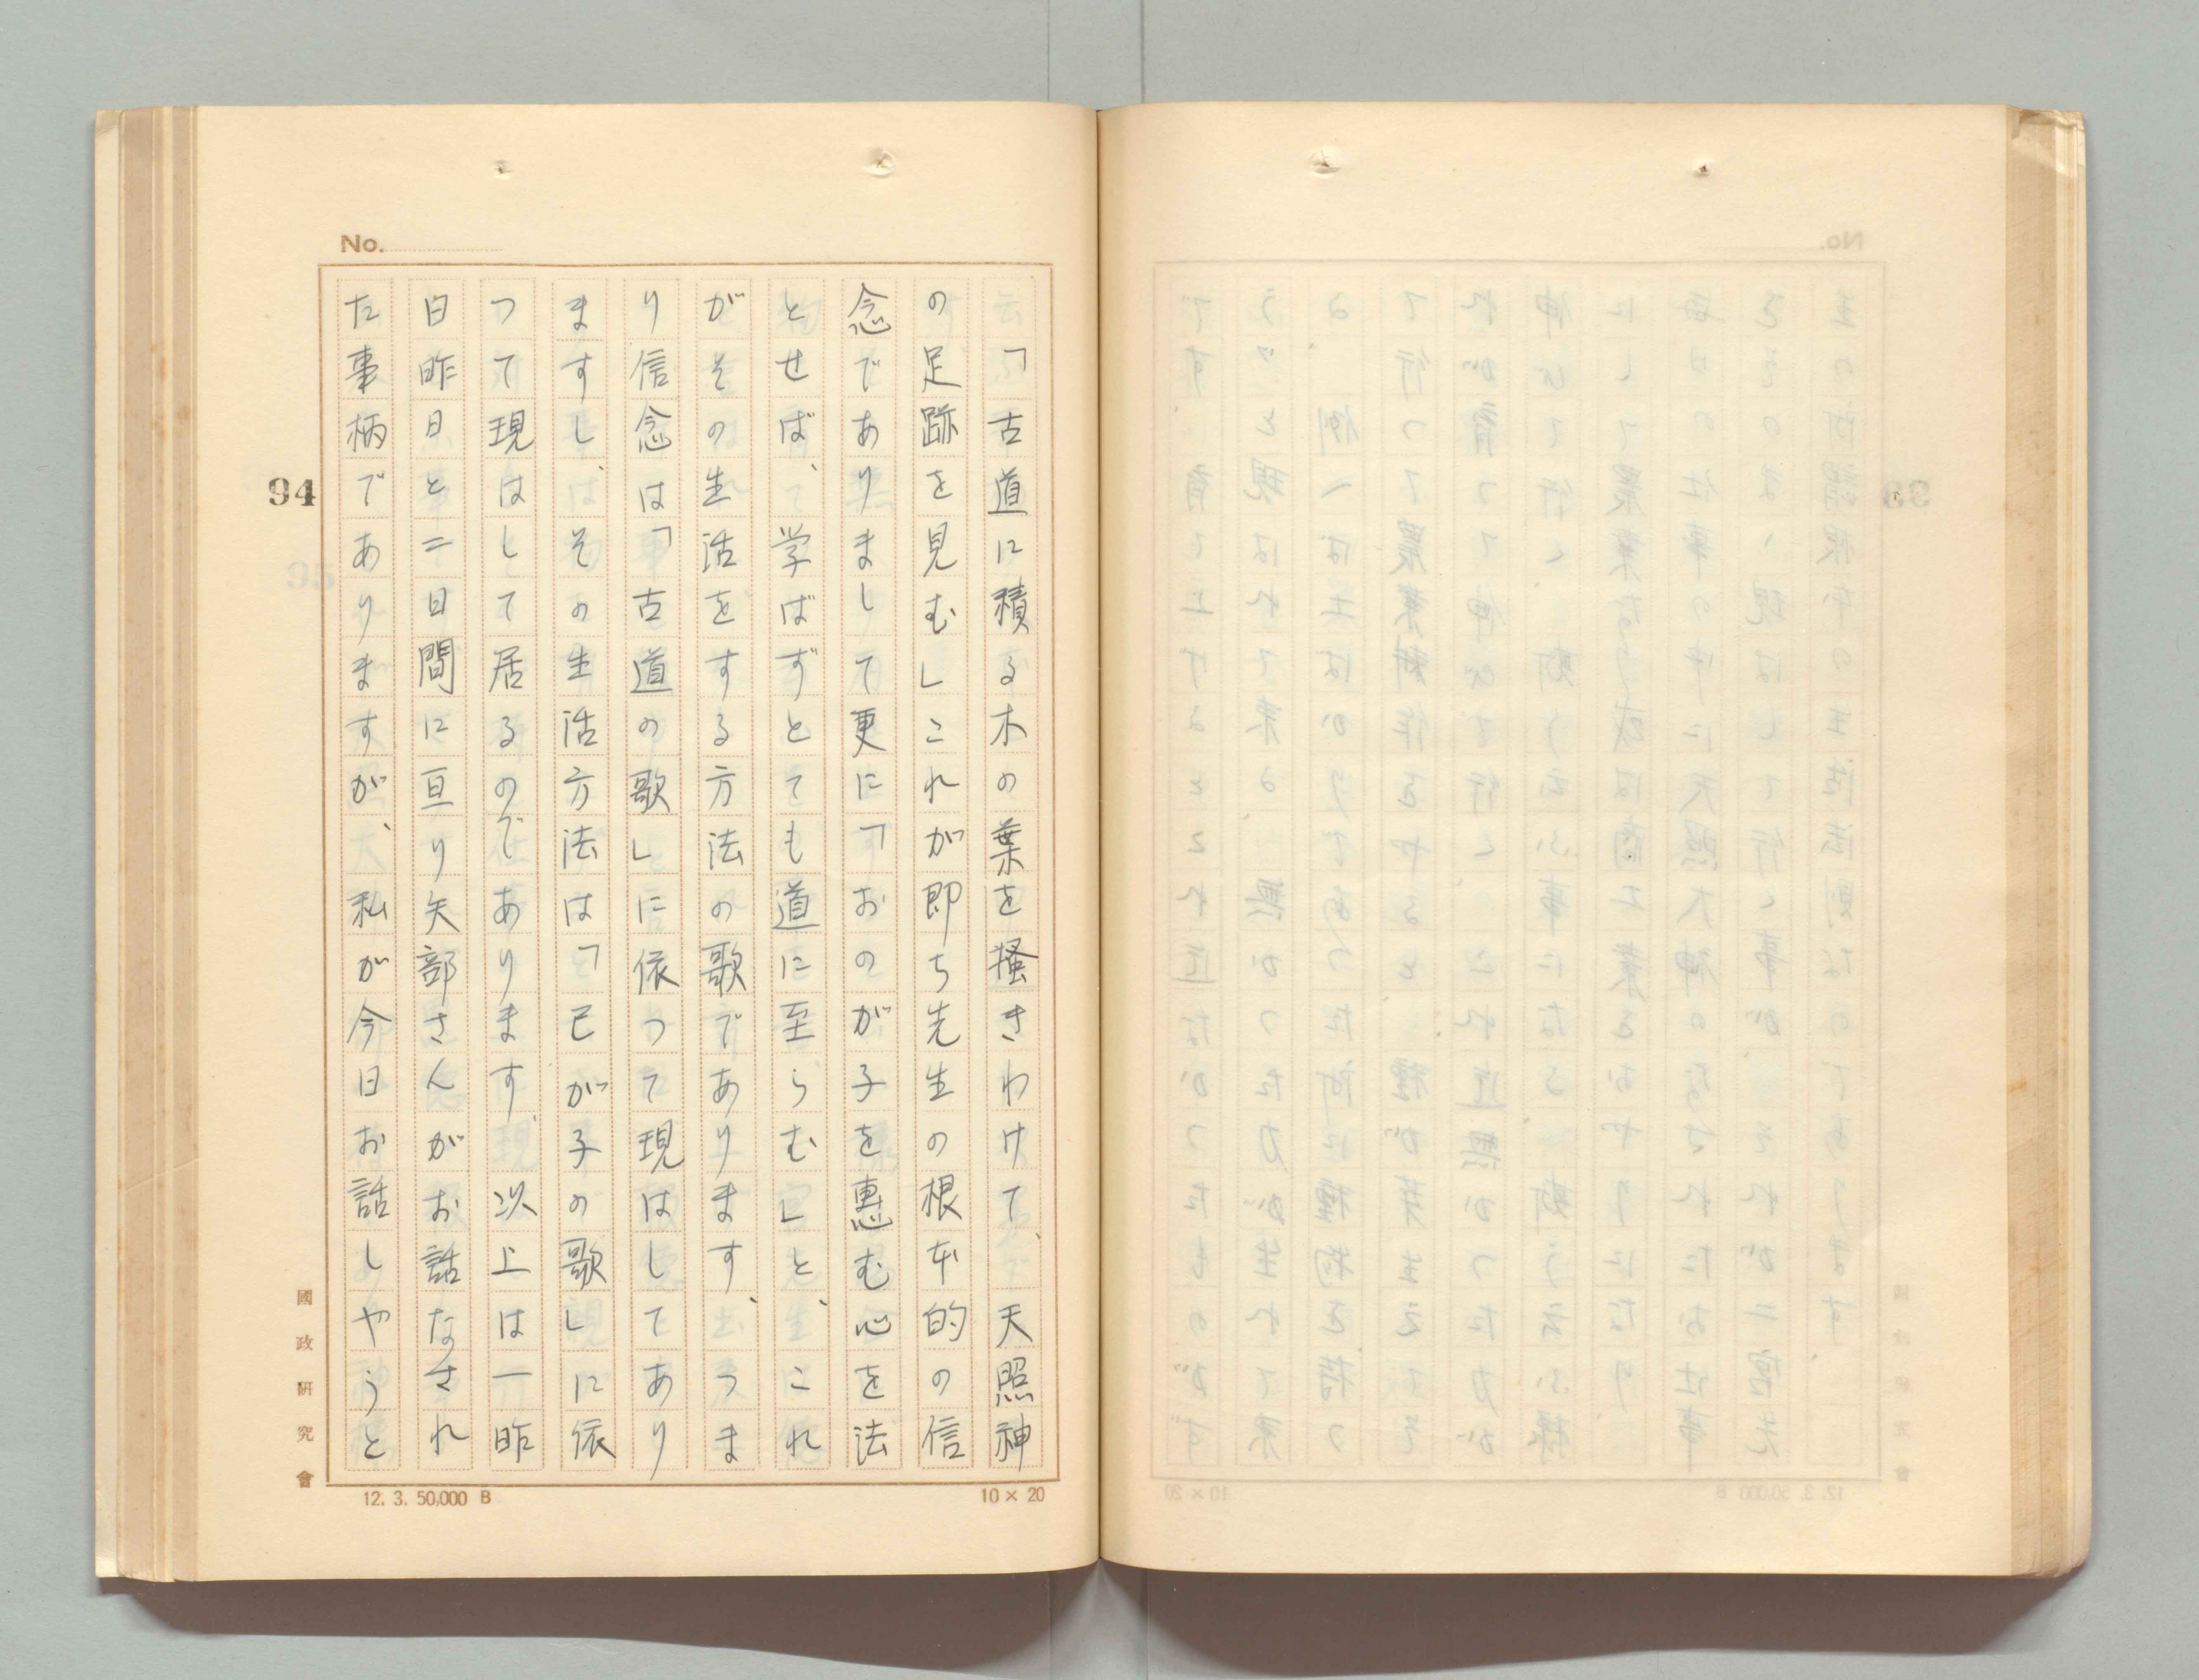 No.
「古道に積る木の葉を掻きわけて、天照神
の足跡を見む」これが即ち先生の根本的の信
念でありまして更に「おのが子を惠む心を法
とせば、学ばずとても道に至らむ」と、これ
がその生活をする方法の歌であります、つま
り信念は「古道の歌」に依つて現はしてあり
ますし、その生活方法は「己が子の歌」に依
つて現はして居るのであります、以上は一昨
日昨日と二日間に亘り矢部さんがお話なされ
た事柄でありますが、私が今日お話しやうと
94
國政研究會
12. 3. 50,000 B
10×20